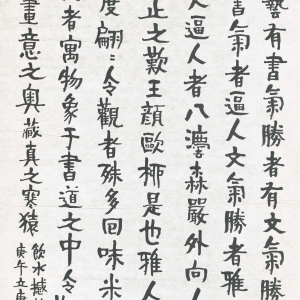 藝有書氣勝者有文氣勝
書氣者逼人文氣勝者雅
人逼人者八灋森嚴外向人
止之歎王顏歐柳是也雅人
度翩〻令觀者殊多回味米
者寓物象于書道之中令
畫意之奧藏真之寒猿
飲水撼
庚午立